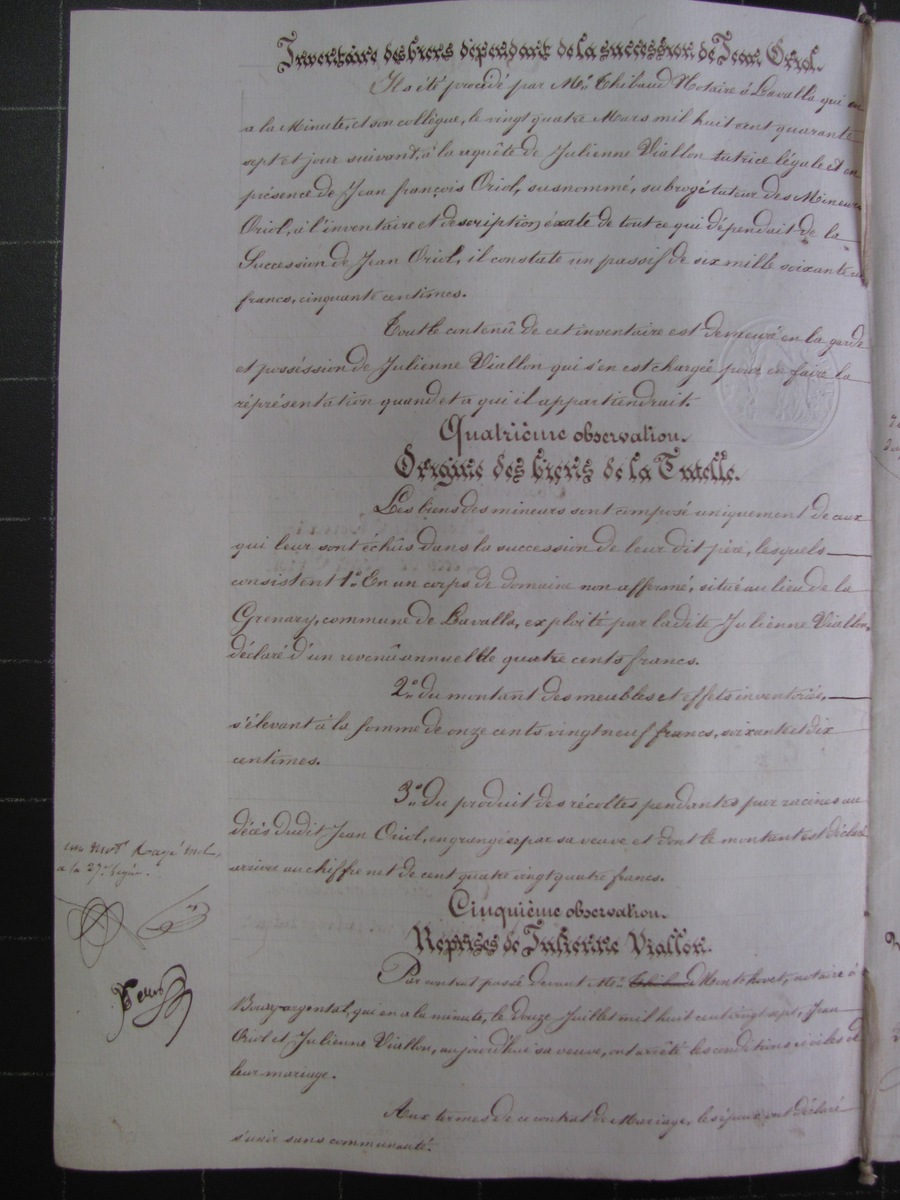 Inventaire des biens dépendant de la succession de Jean Oriol.
Il a été procédé par Me. Thibaud Notaire à Lavalla qui en
a la Minute, et son collègue, le vingt quatre Mars mil huit cent quarante
sept et jour suivant, à la requête de Julienne Viallon tutrice légale et en
présence de Jean françois Oriol, susnommé, subrogé tuteur des Mineurs
Oriol, à l'inventaire et description éxate de tout ce qui dépendait de la
Succession de Jean Oriol, il constate un passif de six mille soixante un
francs, cinquante centimes.
Tout le contenû de cet inventaire est demeuré en la garde
et posséssion de Julienne Viallon qui s'en est chargée pour en faire la
réprésentation quand et a qui il appartiendrait.
Quatrième observation.
Origine des biens de la Tutelle.
Les biens des mineurs sont composé uniquement de ceux
qui leur sont échûs dans la succession de leur dit père, lesquels
consistent 1°. En un corps de domaine non affermé, situé au lieu de la
Grenary, commune de Lavalla, exploité par ladite Julienne Viallon,
déclaré d'un revenû annuel de quatre cents francs.
2°. du montant des meubles et effets inventoriés,
s'élevant à la somme de onze cents vingt neuf francs, soixante et dix
centimes.
3°. du produit des récoltes pendantes par racines au
décès dudit Jean Oriol, engrangées par sa veuve et dont le montant est déclaré
arriver au chiffre net de cent quatre vingt quatre francs.
un mot rayé nul,
a la 27e. ligne.
Cinquième observation.
Reprises de Julienne Viallon.
Par contrat passé devant Me. Thib Montchovet, notaire à
Bourg-argental, qui en a la minute, le douze Juillet mil huit cent vingt sept, Jean
Oriol et Julienne Viallon, aujourd'hui sa veuve, ont arrêté les conditions civiles de
leur mariage.
Aux termes de ce contrat de Mariage, les époux ont déclaré
s'unir sans communauté.